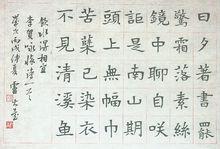 日夕著書罷
驚霜落素絲
鏡中聊自笑
詎是南山期
頭上無幅巾
苦蘗已染衣
不見清溪魚
飲水得相宜
李賀詠懷詩之
歲次丙戌仲夏